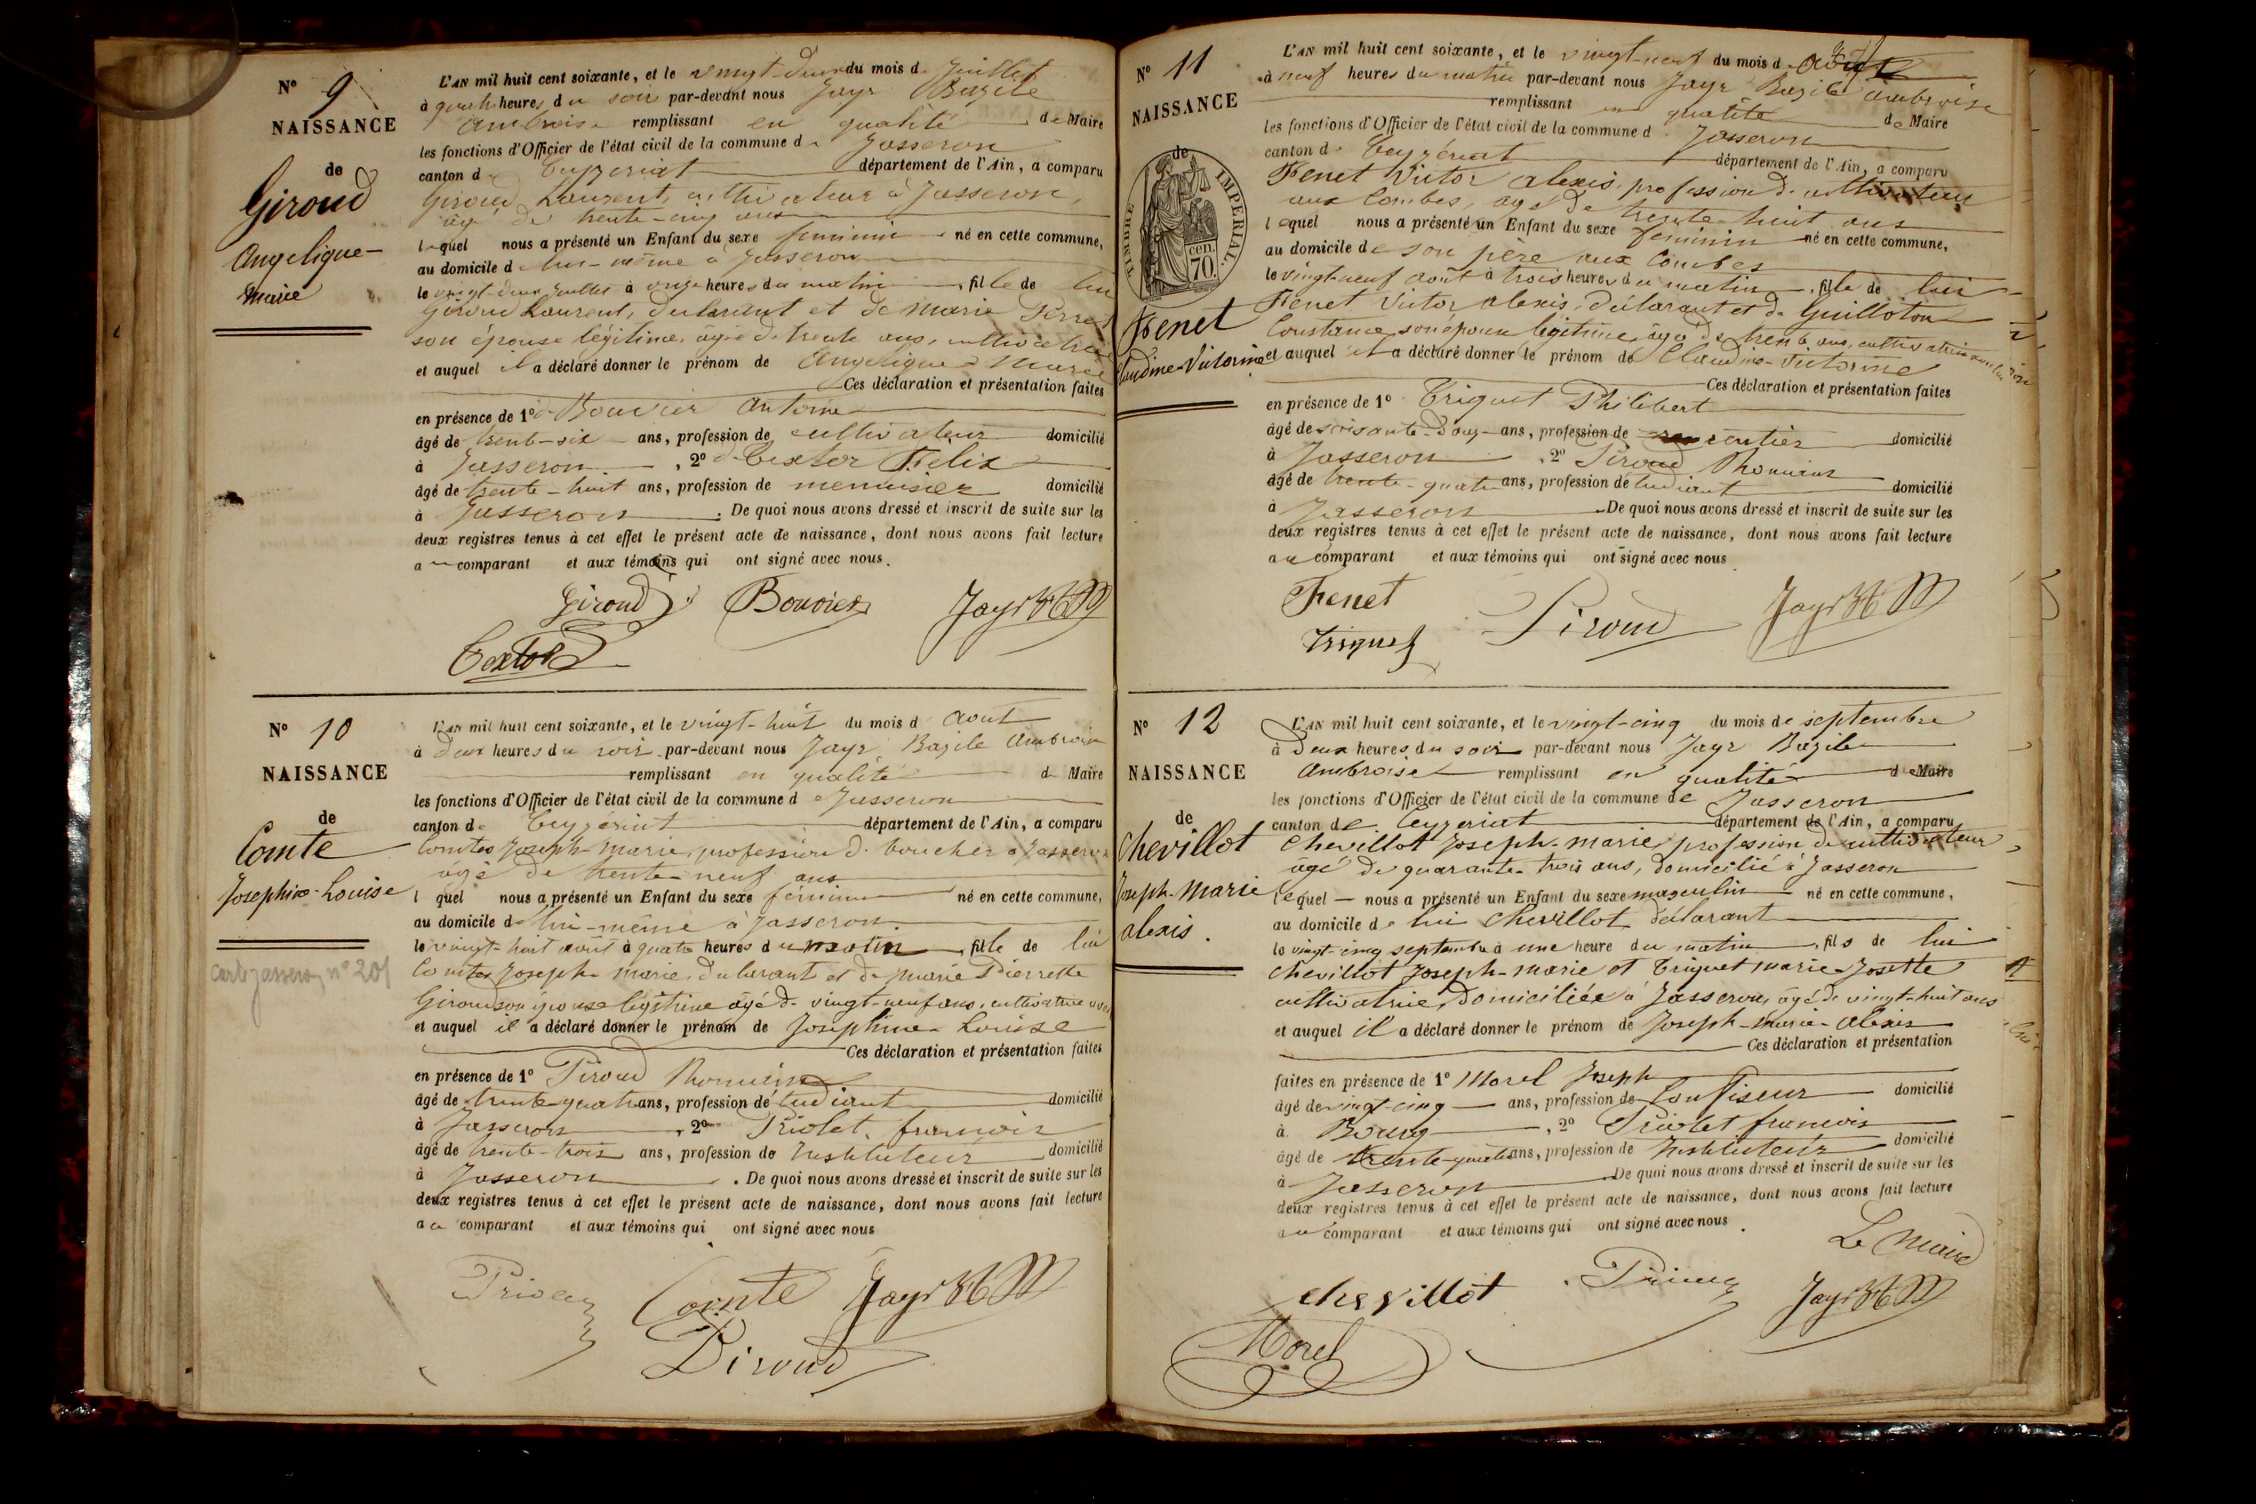 N° 9
NAISSANCE
de
Giroud
Angelique-
Marie
L'AN mil huit cent soixante, et le vingt-deux du mois de Juillet
à quatre heures du soir par-devant nous Jayr Bazile
Ambroise remplissant en qualité de Maire
les fonctions d'Officier de l'état civil de la commune de Jasseron
canton de Ceyzeriat département de l'Ain, a comparu
Giroud Laurent, cultivateur à Jasseron,
âgé de trente-cinq ans
lequel nous a présenté un Enfant du sexe feminin né en cette commune,
au domicile de lui-même à Jasseron
le vingt-deux Juillet à onze heures du matin, fille de lui
Giroud Laurent, declarant et de Marie Perret
son épouse légitime, âgée de trente ans, cultivatrice
et auquel il a déclaré donner le prénom de Angelique Marie
Ces déclaration et présentation faites
en présence de 1° Bouvier Antoine
âgé de trente-six ans, profession de cultivateur domicilié
à Jasseron, 2° Textor Félix
âgé de trente-huit ans, profession de menuisier domicilié
à Jasseron. De quoi nous avons dressé et inscrit de suite sur les
deux registres tenus à cet effet le présent acte de naissance, dont nous avons fait lecture
au comparant et aux témoins qui ont signé avec nous.
Giroud Bouvier Jayr
Textor
N° 10
NAISSANCE
de
Comte
Josephine-Louise
carte Jasseron n° 201
L'AN mil huit cent soixante, et le vingt-huit du mois d Aout
à deux heures du soir par-devant nous Jayr Bazile Ambroise
remplissant en qualité de Maire
les fonctions d'Officier de l'état civil de la commune de Jasseron
canton de Ceyzeriat département de l'Ain, a comparu
Comtes Joseph-Marie, profession de boucher à Jasseron
âgé de trente-neuf ans
l quel nous a présenté un Enfant du sexe féminin né en cette commune,
au domicile de lui-même à Jasseron.
le vingt-huit aout à quatre heures du matin, fille de lui
Comtes Joseph-Marie, declarant et de Marie Pierrette
Giroud son épouse légitime âgé de vingt-neuf ans, cultivatrice
et auquel il a déclaré donner le prénom de Josephine-Louise
Ces déclaration et présentation faites
en présence de 1° Piroud Romain
âgé de trente-quatre ans, profession d'étudiant domicilié
à Jasseron, 2° Priolet françois
âgé de trente-trois ans, profession de Instituteur domicilié
à Jasseron. De quoi nous avons dressé et inscrit de suite sur les
deux registres tenus à cet effet le présent acte de naissance, dont nous avons fait lecture
au comparant et aux témoins qui ont signé avec nous
Comte Jayr
Piroud
N° 11
NAISSANCE
de
TIMBRE IMPERIAL
70 cen.
Fenet
Claudine-Victorine
L'AN mil huit cent soixante, et le vingt-neuf du mois d'Août
à neuf heures du matin par-devant nous Jayr Bazile Ambroise
remplissant en qualité de Maire
les fonctions d'Officier de l'état civil de la commune d Jasseron
canton de Ceyzériat département de l'Ain, a comparu
Fenet Victor Alexis, profession de cultivateur
aux Combes, âgé de trente-huit ans
lequel nous a présenté un Enfant du sexe féminin né en cette commune,
au domicile de son père aux Combes
le vingt-neuf août à trois heures du matin, fille de lui
Fenet Victor Alexis, déclarant et de Guilloton
Constance son épouse légitime, âgée de trente ans, cultivatrice
et auquel il a déclaré donner le prénom de Claudine-Victorine
Ces déclaration et présentation faites
en présence de 1° Triquet Philibert
âgé de soixante-douze ans, profession de rentier domicilié
à Jasseron, 2° Piroud Romain
âgé de trente-quatre ans, profession d'étudiant domicilié
à Jasseron. De quoi nous avons dressé et inscrit de suite sur les
deux registres tenus à cet effet le présent acte de naissance, dont nous avons fait lecture
au comparant et aux témoins qui ont signé avec nous
Fenet Piroud Jayr
Triquet
N° 12
NAISSANCE
de
Chevillot
Joseph-Marie
alexis.
L'AN mil huit cent soixante, et le vingt-cinq du mois de septembre
à deux heures du soir par-devant nous Jayr Bazile
Ambroise remplissant en qualité de Maire
les fonctions d'Officier de l'état civil de la commune de Jasseron
canton de Ceyzeriat département de l'Ain, a comparu
Chevillot Joseph-marie, profession de cultivateur
âgé de quarante-trois ans, domicilié à Jasseron
lequel nous a présenté un Enfant du sexe masculin né en cette commune,
au domicile de lui Chevillot déclarant
le vingt-cinq septembre à une heure du matin, fils de lui
Chevillot Joseph-marie et Triquet marie-Josette
cultivatrice, domiciliée à Jasseron, âgé de vingt-huit ans
et auquel il a déclaré donner le prénom de Joseph-marie-alexis
Ces déclaration et présentation
faites en présence de 1° Morel Joseph
âgé de vingt-cinq ans, profession de Confiseur domicilié
à Bourg, 2° Priolet francois
âgé de trente-quatre ans, profession de Instituteur domicilié
à Jasseron. De quoi nous avons dressé et inscrit de suite sur les
deux registres tenus à cet effet le présent acte de naissance, dont nous avons fait lecture
au comparant et aux témoins qui ont signé avec nous.
Le Maire
Chevillot Jayr
Morel